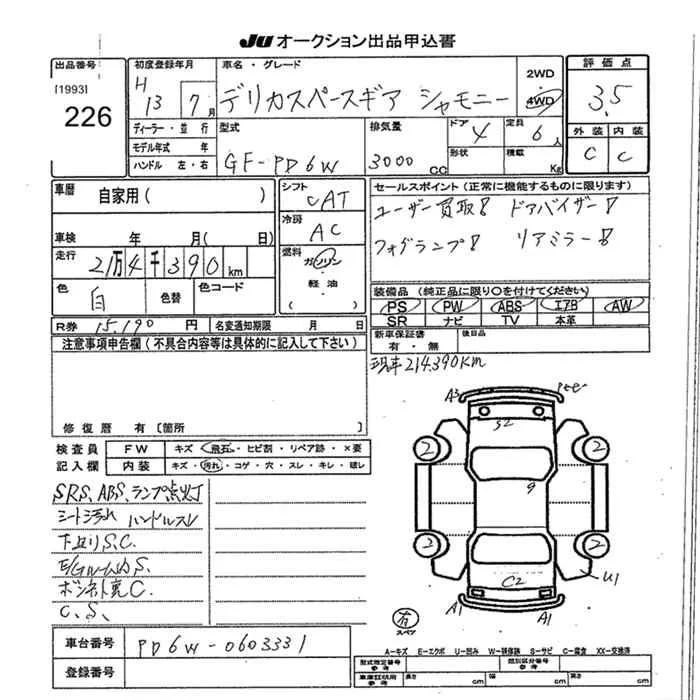 JU オークション出品申込書
出品番号
[1993]
226
初度登録年月
H 13 7月
車名・グレード
デリカスペースギア シャモニー
2WD
4WD
評価点
3.5
ディーラー・並行
モデル年式 年
ハンドル 左・右
型式
GF-PD6W
排気量
3000 CC
ドア 4
形状
定員 6人
積載 Kg
外装 内装
C C
車歴 自家用( )
車検 年 月( 日)
走行 2万4千390km
色 白 色替 色コード
シフト
CAT
冷房
AC
燃料
ガソリン
・
軽油
セールスポイント(正常に機能するものに限ります)
ユーザー買取! ドアバイザー!
フォグランプ! リアミラー!
装備品(純正品に限り○を付けてください)
PS PW ABS エアB AW
SR ナビ TV 本革
R券 15,190 円 名変通知期限 月 日
新車保証書
有・無
後日品
注意事項申告欄(不具合内容等は具体的に記入して下さい)
現車214.390KM
修復歴 有〔箇所 〕
検査員
記入欄
FW キズ・飛石・ヒビ割・リペア跡・×要
内装 キズ・汚れ・コゲ・穴・スレ・キレ・破レ
SRS、ABS、ランプ点灯
シート汚れ ハンドルスレ
下廻りS.C.
S.
ボンネット裏C.
C.S.
A3
S2
2 2
9
2 2
C2
U1
A1 A1
有
スペア
車台番号 PD6W-0603331
登録番号
A-キズ E-エクボ U-凹ミ W-補修跡 S-サビ C-腐食 XX-交換済
型式指定番号 類別区分番号
車庫証明用 長さ cm 幅 cm 高さ cm